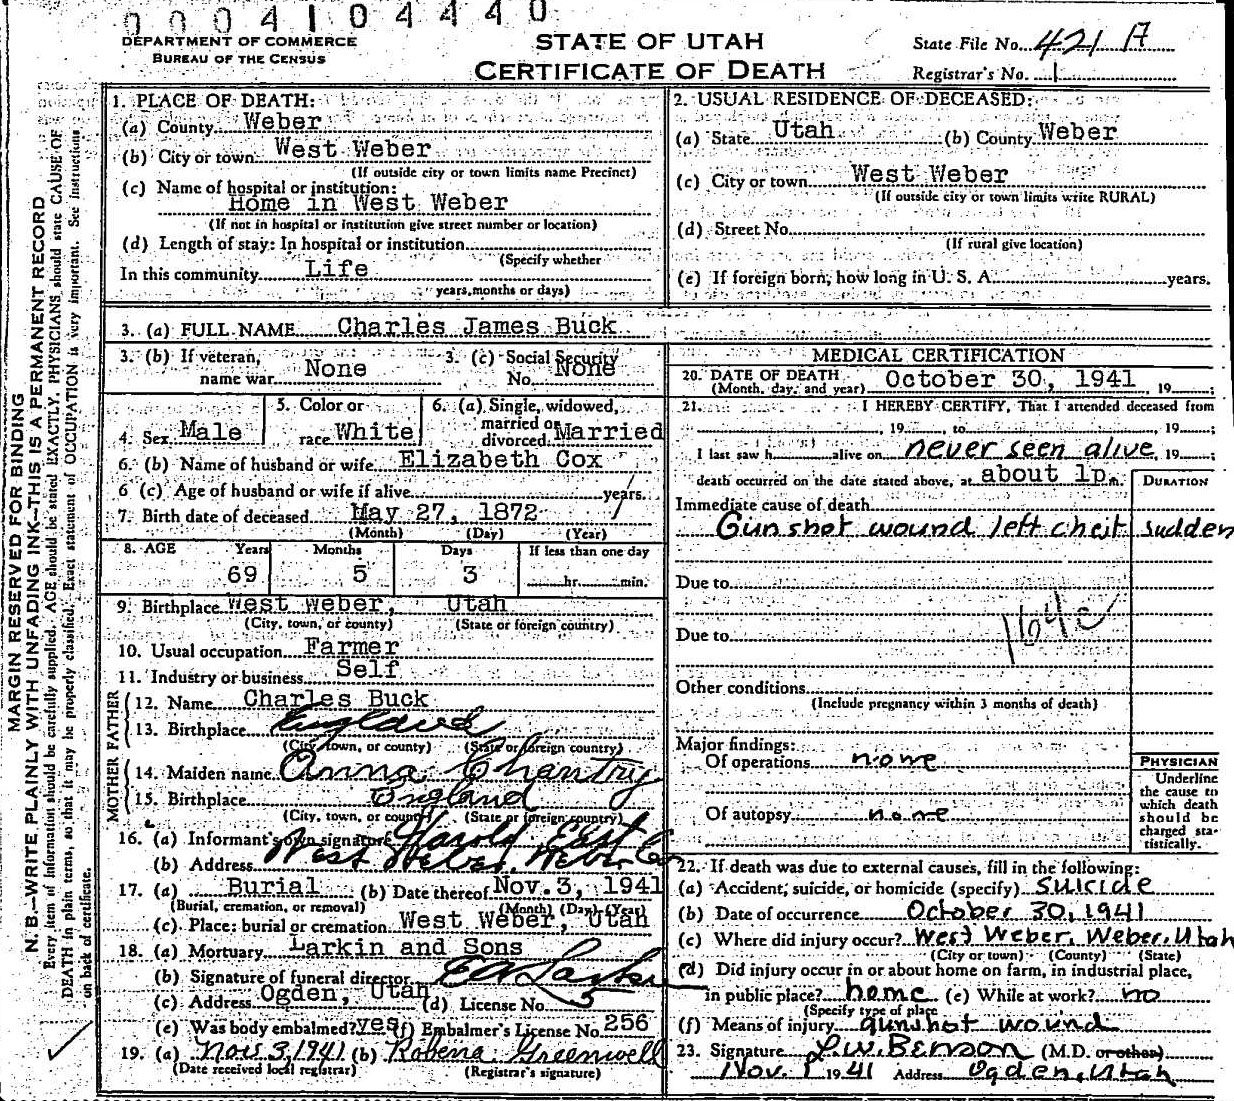 0004104440
DEPARTMENT OF COMMERCE
BUREAU OF THE CENSUS
STATE OF UTAH
CERTIFICATE OF DEATH
State File No. 421 A
Registrar's No. 1
MARGIN RESERVED FOR BINDING
N. B.—WRITE PLAINLY WITH UNFADING INK—THIS IS A PERMANENT RECORD
Every item of information should be carefully supplied. AGE should be stated EXACTLY. PHYSICIANS should state CAUSE OF
DEATH in plain terms, so that it may be properly classified. Exact statement of OCCUPATION is very important. See instructions
on back of certificate.
1. PLACE OF DEATH:
(a) County Weber
(b) City or town West Weber
(If outside city or town limits name Precinct)
(c) Name of hospital or institution:
Home in West Weber
(If not in hospital or institution give street number or location)
(d) Length of stay: In hospital or institution
(Specify whether
In this community Life
years, months or days)
2. USUAL RESIDENCE OF DECEASED:
(a) State Utah (b) County Weber
(c) City or town West Weber
(If outside city or town limits write RURAL)
(d) Street No.
(If rural give location)
(e) If foreign born, how long in U. S. A. years.
3. (a) FULL NAME Charles James Buck
3. (b) If veteran, name war None
3. (c) Social Security No. None
4. Sex Male
5. Color or race White
6. (a) Single, widowed, married or divorced Married
6. (b) Name of husband or wife Elizabeth Cox
6 (c) Age of husband or wife if alive years.
7. Birth date of deceased May 27, 1872
(Month) (Day) (Year)
8. AGE Years Months Days If less than one day
69 5 3 hr. min.
9. Birthplace West Weber, Utah
(City, town, or county) (State or foreign country)
10. Usual occupation Farmer
11. Industry or business Self
FATHER
12. Name Charles Buck
13. Birthplace England
(City, town, or county) (State or foreign country)
MOTHER
14. Maiden name Anna Chantry
15. Birthplace England
(City, town, or county) (State or foreign country)
16. (a) Informant's own signature Harold East
(b) Address West Weber, Weber Co
17. (a) Burial (b) Date thereof Nov. 3, 1941
(Burial, cremation, or removal) (Month) (Day) (Year)
(c) Place: burial or cremation West Weber, Utah
18. (a) Mortuary Larkin and Sons
(b) Signature of funeral director E A Larkin
(c) Address Ogden, Utah (d) License No. 5
(e) Was body embalmed? yes (f) Embalmer's License No. 256
19. (a) Nov 3, 1941 (b) Robena Greenwell
(Date received local registrar) (Registrar's signature)
MEDICAL CERTIFICATION
20. DATE OF DEATH October 30, 1941 19 ;
(Month, day, and year)
21. I HEREBY CERTIFY, That I attended deceased from
, 19 , to , 19 ;
I last saw h alive on never seen alive, 19 ;
death occurred on the date stated above, at about 1p m.
DURATION
Immediate cause of death
Gunshot wound left chest sudden
Due to
Due to
164c
Other conditions
(Include pregnancy within 3 months of death)
Major findings:
Of operations none
Of autopsy none
PHYSICIAN
Underline
the cause to
which death
should be
charged sta-
tistically.
22. If death was due to external causes, fill in the following:
(a) Accident, suicide, or homicide (specify) suicide
(b) Date of occurrence October 30, 1941
(c) Where did injury occur? West Weber, Weber, Utah
(City or town) (County) (State)
(d) Did injury occur in or about home on farm, in industrial place,
in public place? home (e) While at work? no
(Specify type of place
(f) Means of injury gunshot wound
23. Signature L.W. Benson (M.D. or other)
Nov. 1 1941 Address Ogden, Utah